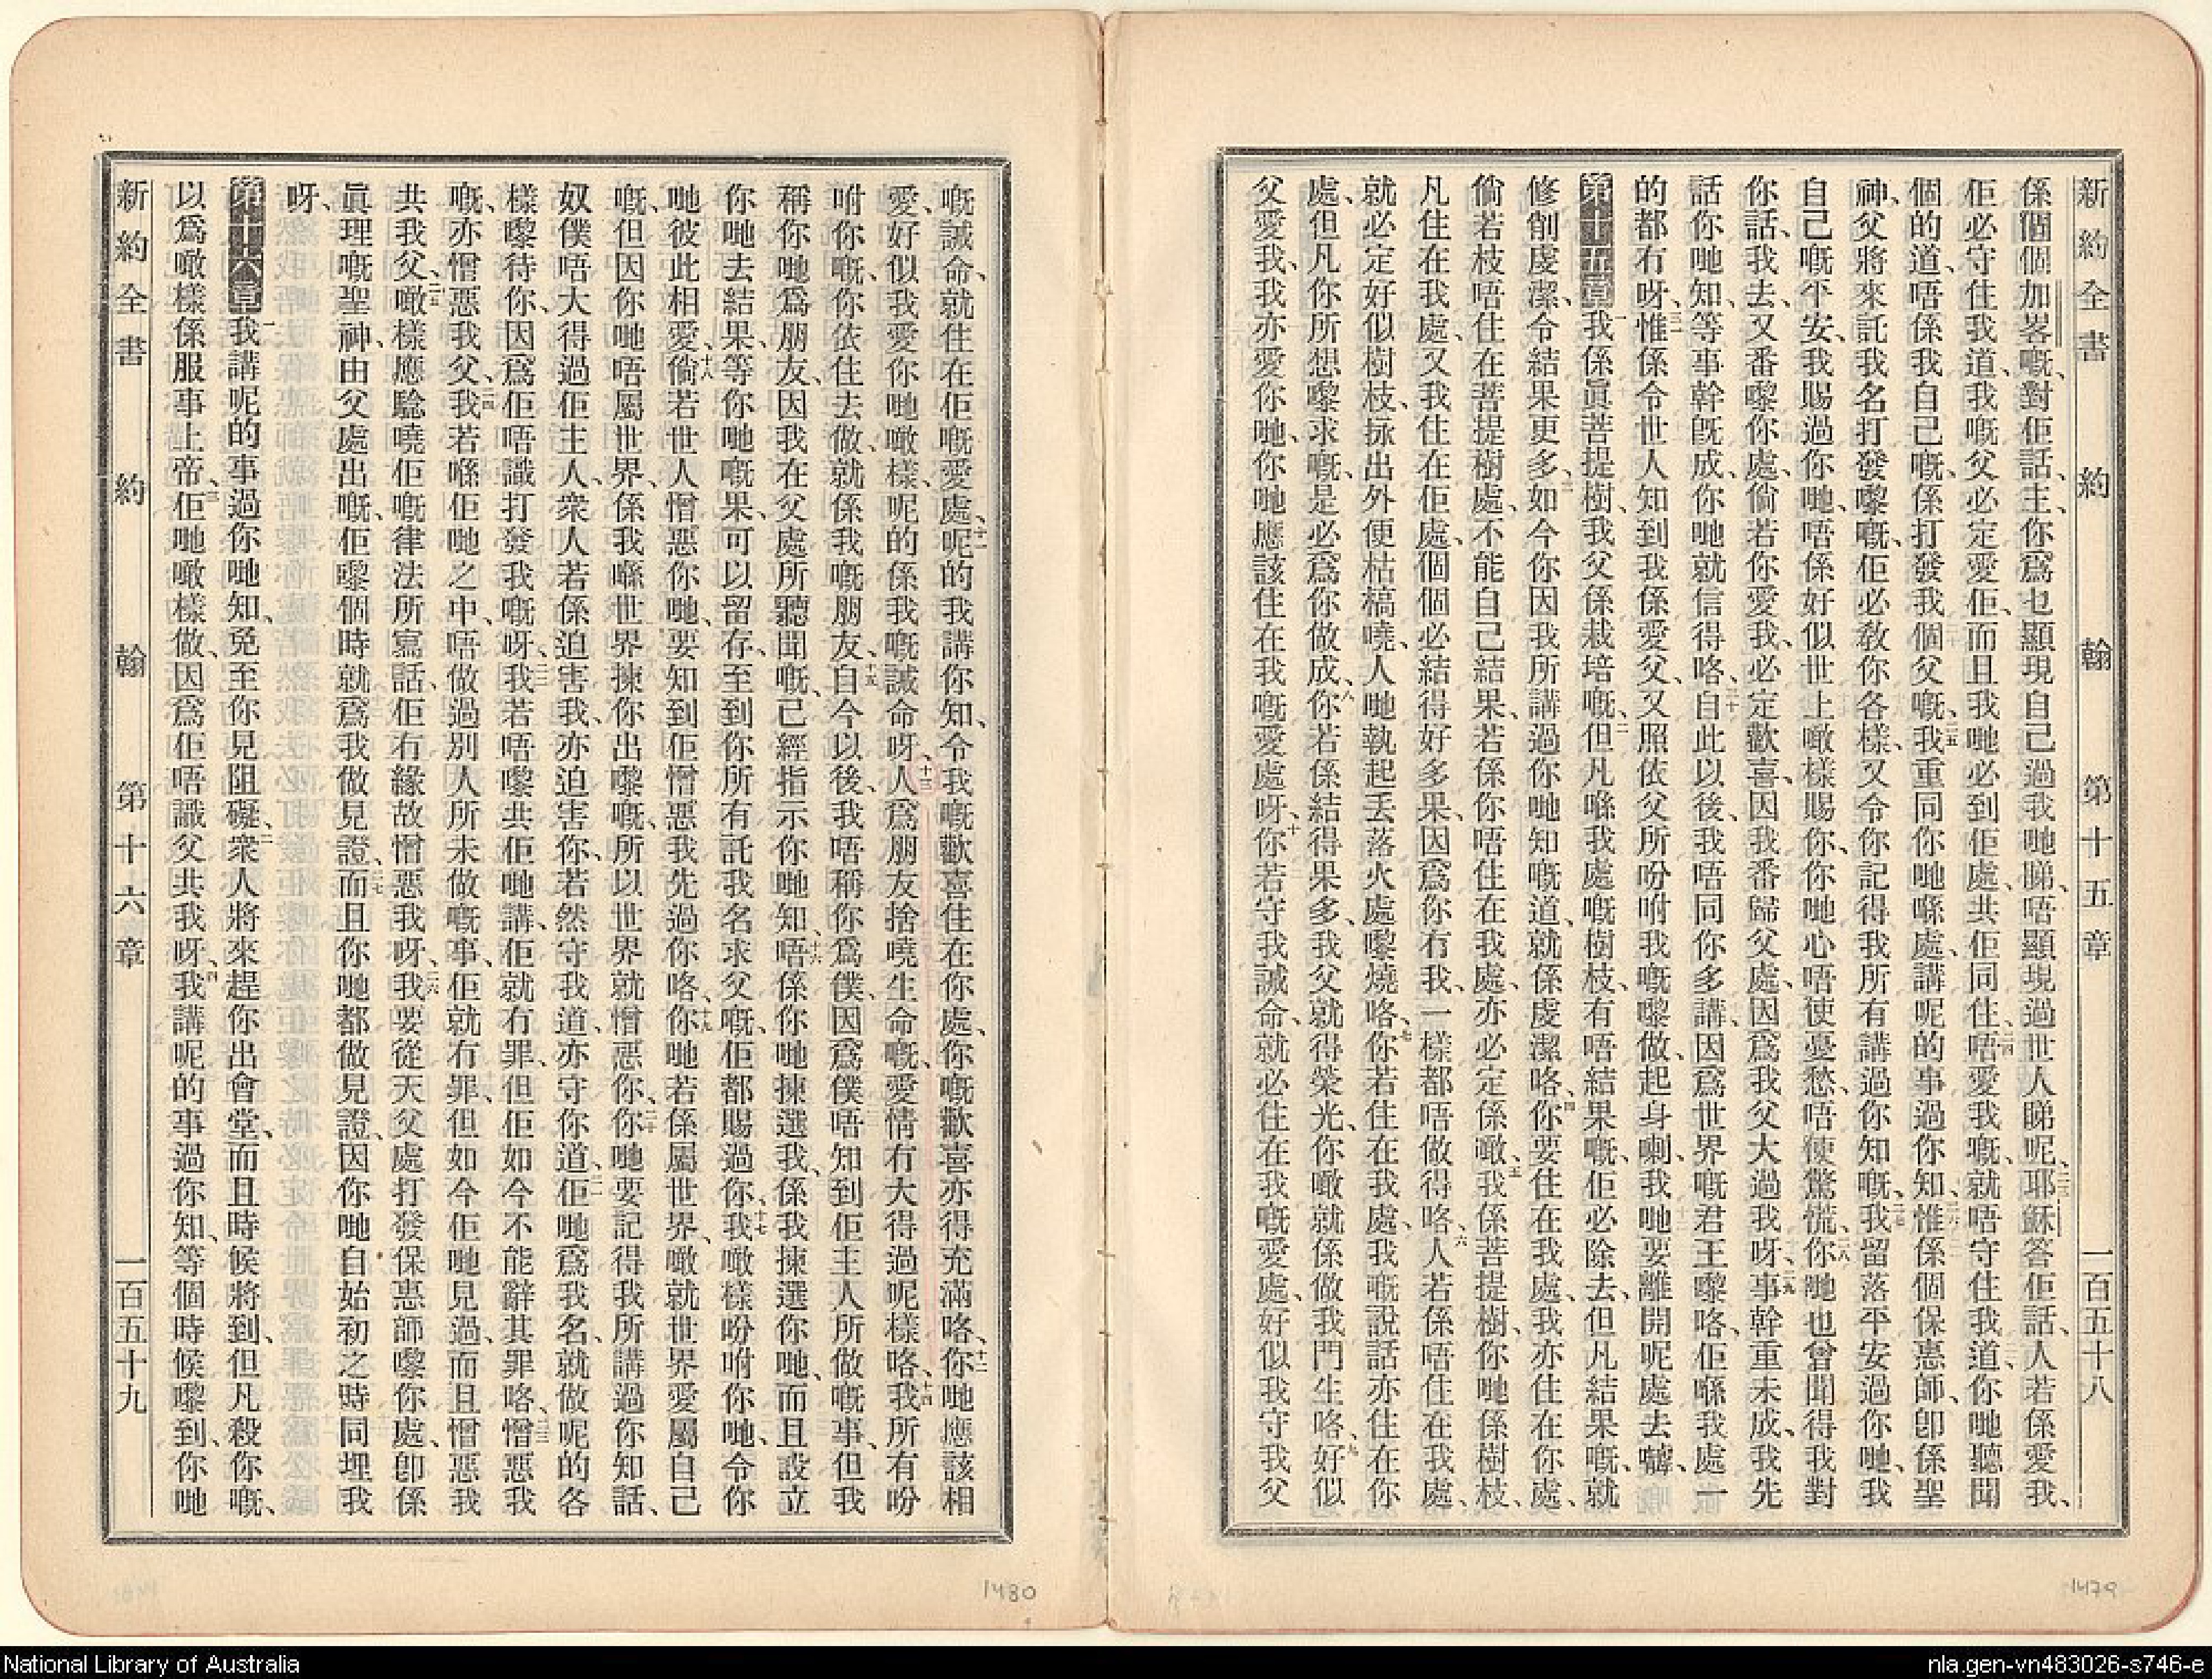 新約全書　約　翰　第十五章　一百五十八
係個個加畧嘅、對佢話、主、你爲乜顯現自己過我哋睇、唔顯現過世人睇呢、二三耶穌答佢話、人若係愛我、
佢必守住我道、我嘅父必定愛佢、而且我哋必到佢處、共佢同住、二四唔愛我嘅、就唔守住我道、你哋聽聞
個的道、唔係我自己嘅、係打發我個父嘅、二五我重同你哋喺處、講呢的事過你知、二六惟係個保惠師、卽係聖
神、父將來託我名打發嚟嘅、佢必教你各樣、又令你記得我所有講過你知嘅、二七我留落平安過你哋、我
自己嘅平安、我賜過你哋、唔係好似世上噉樣賜你、你哋心唔使憂愁、唔使驚慌、二八你哋也曾聞得我對
你話、我去、又番嚟你處、倘若你愛我、必定歡喜、因我番歸父處、因爲我父大過我呀、二九事幹重未成、我先
話你哋知、等事幹旣成、你哋就信得咯、三十自此以後、我唔同你多講、因爲世界嘅君王嚟咯、佢喺我處一
的都冇呀、三一惟係令世人知到我係愛父、又照依父所吩咐我嘅嚟做、起身喇、我哋要離開呢處去嚹、
第十五章一我係眞菩提樹、我父係栽培嘅、二但凡喺我處嘅樹枝、有唔結果嘅、佢必除去、但凡結果嘅、就
修削虔潔、令結果更多、三如今你因我所講過你哋知嘅道、就係虔潔咯、四你要住在我處、我亦住在你處、
倘若枝唔住在菩提樹處、不能自己結果、若係你唔住在我處、亦必定係噉、五我係菩提樹、你哋係樹枝、
凡住在我處、又我住在佢處、個個必結得好多果、因爲你冇我、一樣都唔做得咯、六人若係唔住在我處、
就必定好似樹枝、㧒出外便枯槁嘵、人哋執起丟落火處嚟燒咯、七你若住在我處、我嘅說話亦住在你
處、但凡你所想嚟求嘅、是必爲你做成、八你若係結得果多、我父就得榮光、你噉就係做我門生咯、九好似
父愛我、我亦愛你哋、你哋應該住在我嘅愛處呀、十你若守我誡命、就必住在我嘅愛處、好似我守我父
嘅誡命、就住在佢嘅愛處、十一呢的我講你知、令我嘅歡喜住在你處、你嘅歡喜亦得充滿咯、十二你哋應該相
愛、好似我愛你哋噉樣、呢的係我嘅誡命呀、十三人爲朋友捨嘵生命嘅、愛情冇大得過呢樣咯、十四我所有吩
咐你嘅、你依住去做、就係我嘅朋友、十五自今以後、我唔稱你爲僕、因爲僕唔知到佢主人所做嘅事、但我
稱你哋爲朋友、因我在父處所聽聞嘅、己經指示你哋知、十六唔係你哋揀選我、係我揀選你哋、而且設立
你哋去結果、等你哋嘅果、可以留存、至到你所有託我名求父嘅、佢都賜過你、十七我噉樣吩咐你哋、令你
哋彼此相愛、十八倘若世人憎惡你哋、要知到佢憎惡我先過你咯、十九你哋若係屬世界、噉就世界愛屬自己
嘅、但因你哋唔屬世界、係我喺世界揀你出嚟嘅、所以世界就憎惡你、二十你哋要記得我所講過你知話、
奴僕唔大得過佢主人、衆人若係迫害我、亦迫害你、若然守我道、亦守你道、二一佢哋爲我名、就做呢的各
樣嚟待你、因爲佢唔識打發我嘅呀、二二我若唔嚟共佢哋講、佢就冇罪、但佢如今不能辭其罪咯、二三憎惡我
嘅、亦憎惡我父、二四我若喺佢哋之中、唔做過別人所未做嘅事、佢就冇罪、但如今佢哋見過、而且憎惡我
共我父、二五噉樣應驗嘵佢嘅律法所寫話、佢冇緣故憎惡我呀、二六我要從天父處打發保惠師嚟你處、卽係
眞理嘅聖神、由父處出嘅、佢嚟個時就爲我做見證、二七而且你哋都做見證、因你哋自始初之時同埋我
呀、
第十六章一我講呢的事過你哋知、免至你見阻礙、二衆人將來趕你出會堂、而且時候將到、但凡殺你嘅、
以爲噉樣係服事上帝、三佢哋噉樣做、因爲佢唔識父共我呀、四我講呢的事過你知、等個時候嚟到、你哋
新約全書　約　翰　第十六章　一百五十九
1479
1480
National Library of Australia
nla.gen-vn483026-s746-e